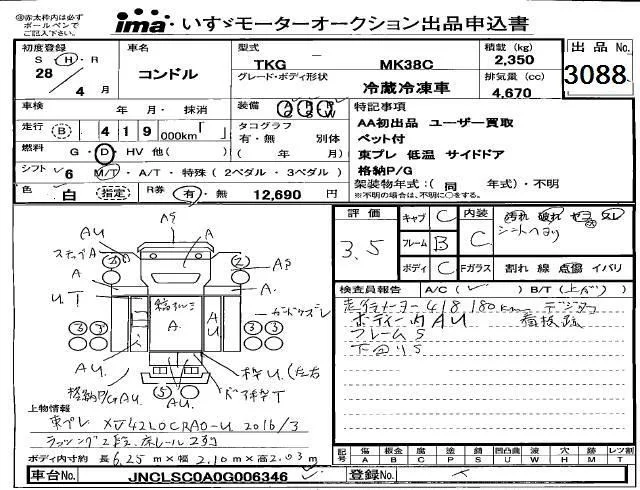 赤太枠内は必ず
ボールペンで
ご記入下さい。
ima いすゞモーターオークション出品申込書
初度登録 車名 型式 積載 (kg) 出品No.
S・H・R コンドル TKG MK38C 2,350 3088
28/4月 グレード・ボディ形状 冷蔵冷凍車 排気量 (cc) 4,670
車検 年 月・抹消 装備 A/C P/S P/W 特記事項
走行 B 419 000km「 」 タコグラフ AA初出品 ユーザー買取
有・無 別体 ベット付
燃料 G・D・HV 他( ) ( 年 月) 東プレ 低温 サイドドア
シフト 6 M/T・A/T・特殊(2ペダル・3ペダル) 格納P/G
色 白 指定 R券 有・無 12,690円 架装物年式:(同 年式)・不明
※不明の場合は、不明に○をする。
評価 3.5 キャブ C 内装 C 汚れ 破れ
フレーム B
ボディ C Fガラス 割れ 線 点傷 イバリ
検査員報告 A/C( ) B/T(上ガリ)
走行メーター 418180km デジタコ
ボディー内AU 看板跡
フレームS
下回りS
AS
AU A
ステップA
A. A.
U.T 縮 A. AU
AU. AU.
格納P/G AU. ドア枠T
上物情報
東プレ XV42LOCRAO-U 2016/3
ラッシング2段 床レール2列
ボディ内寸約 長6.25m×幅2.10m×高2.03m
記号 傷A 板金B 腐C 塗P 錆S 凹凸曲U 波W 穴H 跡X メレT 割M
車台No. JNCLSC0A0G006346 登録No.